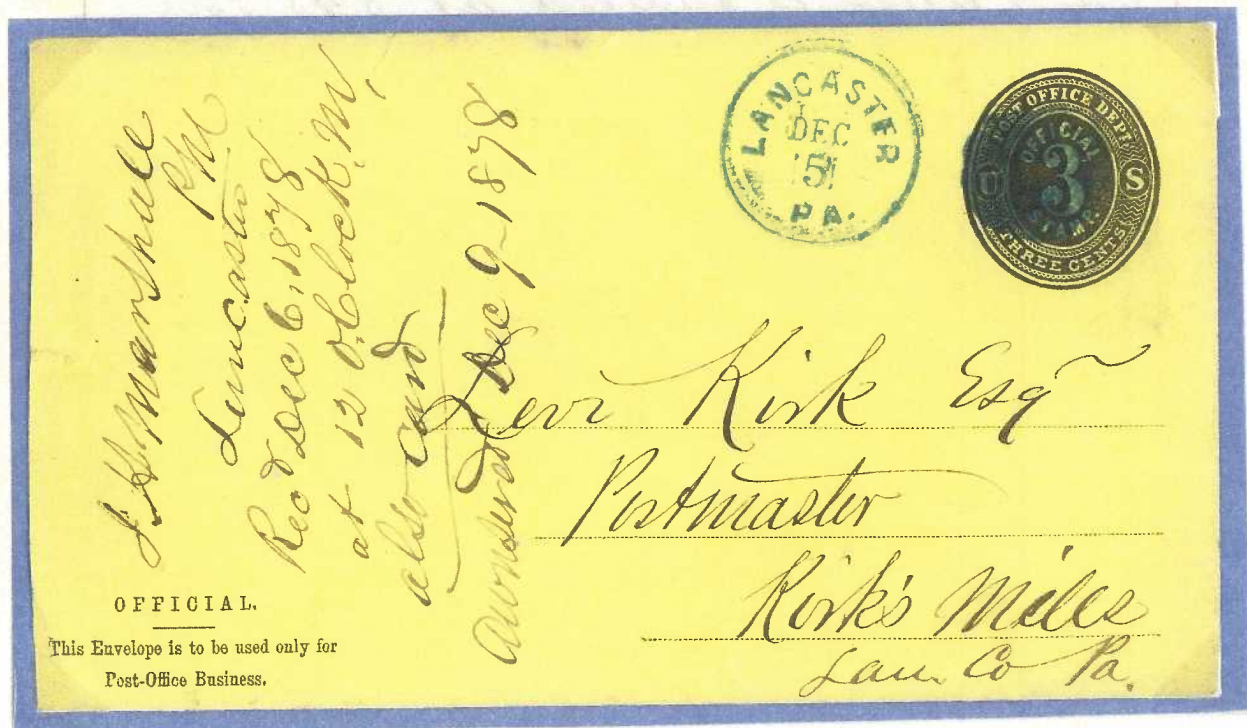 J H Marshall
P.M
Lancaster
Recd Dec 6, 1878
at 12 O.Clock M,
also card
Awnsered Dec 9-1878
LANCASTER
DEC
5
PA.
POST OFFICE DEPT.
U S
OFFICIAL
3
STAMP.
THREE CENTS
Levi Kirk Esqr
Postmaster
Kirk's Mills
Lan. Co Pa.
OFFICIAL.
This Envelope is to be used only for
Post-Office Business.